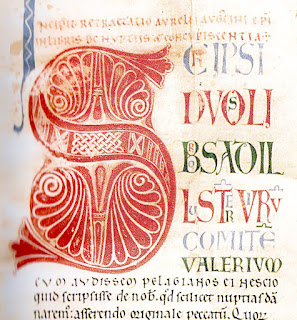 INCIPIT RETRACTATIO AURELII AUGUSTINI EPI
IN LIBRIS DE NUPTIIS & CONCUPISCENTIA
SCRIPSI
DUOS LI
BROS AD IL
LUSTRE VIRŪ
COMITE
VALERIUM
CUM AUDISSEM PELAGIANOS EI NESCIO
quid scripsisse de nob. qđ scilicet nuptias dā
narem: asserendo originale peccatū. Quor